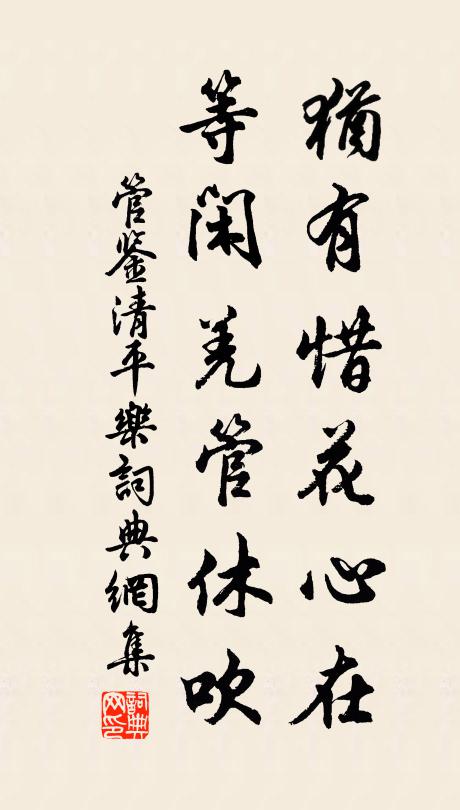 猶有惜花心在
等閑羌管休吹
管鉴清平樂詞典網集
詞典网印